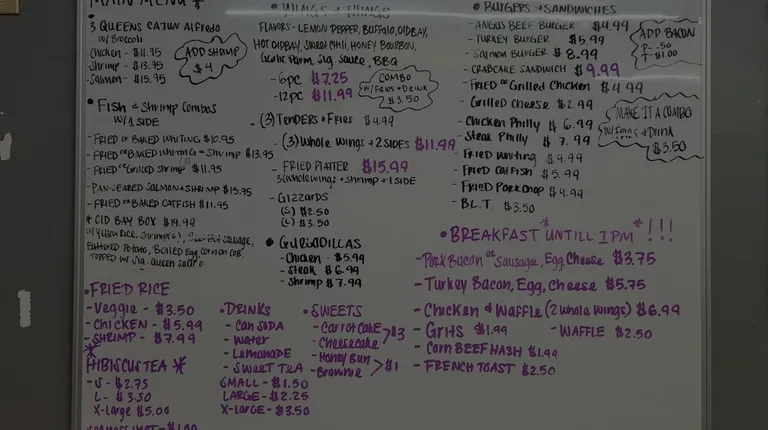 MAIN MENU *
3 QUEENS CAJUN ALFREDO
W/ BROCCOLI
CHICKEN - $11.95
SHRIMP - $13.95
SALMON - $15.95
ADD SHRIMP
$4
• FISH & SHRIMP COMBOS
W/ 1 SIDE
- FRIED OR BAKED WHITING $10.95
- FRIED OR BAKED WHITING + SHRIMP $13.95
- FRIED OR GRILLED SHRIMP $11.95
- PAN-SEARED SALMON + SHRIMP $15.95
- FRIED OR BAKED CATFISH $11.95
* OLD BAY BOX $14.99
W/ YELLOW RICE, SHRIMP, SAUSAGE,
BUTTERED POTATO, BOILED EGG, CORN ON COB,
TOPPED W/ SIG. QUEEN SAUCE
• FRIED RICE
- Veggie - $3.50
- CHICKEN - $5.99
- SHRIMP - $7.99
* HIBISCUS TEA *
- S - $2.75
L - $3.50
X-Large $5.00
• WINGS & THINGS
FLAVORS - LEMON PEPPER, BUFFALO, OLD BAY,
HOT OLD BAY, SWEET CHILI, HONEY BOURBON,
GARLIC PARM, SIG. SAUCE, BBQ
- 6pc $7.25
- 12pc $11.99
COMBO
W/ FRIES + DRINK
$3.50
- (3) TENDERS + FRIES $4.99
- (3) WHOLE WINGS + 2 SIDES $11.99
- FRIED PLATTER $15.99
3 WHOLE WINGS + SHRIMP + 1 SIDE
- GIZZARDS
(S) $2.50
(L) $3.50
• QUESADILLAS
- CHICKEN - $5.99
- STEAK - $6.99
- SHRIMP $7.99
• DRINKS
- CAN SODA
- WATER
- LEMONADE
- SWEET TEA
SMALL - $1.50
LARGE - $2.25
X-LARGE - $3.50
• SWEETS
- CARROT CAKE
- CHEESECAKE > $3
- HONEY BUN
- BROWNIE > $1
• BURGERS + SANDWICHES
- ANGUS BEEF BURGER $4.99
- TURKEY BURGER $5.99
- SALMON BURGER $8.99
- CRABCAKE SANDWICH $9.99
- FRIED OR Grilled Chicken $4.99
- Grilled Cheese $2.99
- Chicken Philly $6.99
- Steak Philly $7.99
- FRIED WHITING $4.99
- FRIED CATFISH $5.99
- FRIED PORK CHOP $4.99
- B.L.T. $3.50
ADD BACON
P - .50
T - $1.00
MAKE IT A COMBO
W/ Fries + Drink
$3.50
• BREAKFAST UNTILL 1PM * !!!
- Pork Bacon OR Sausage, Egg, Cheese $3.75
- Turkey Bacon, Egg, Cheese $5.75
- Chicken & Waffle (2 whole wings) $6.99
- Grits $1.99 - WAFFLE $2.50
- CORN BEEF HASH $1.99
- FRENCH TOAST $2.50